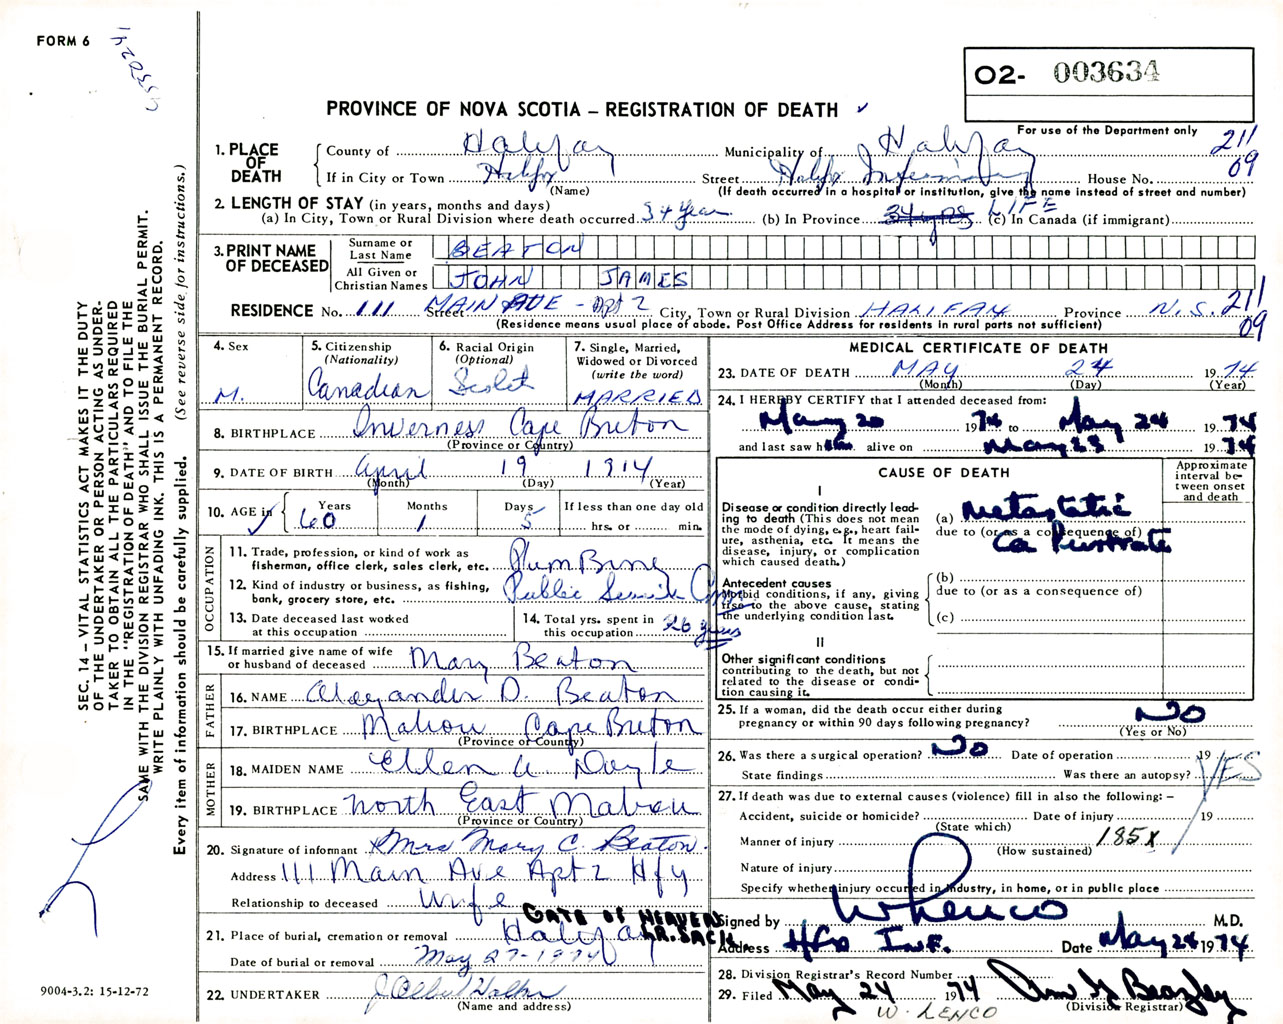 FORM 6
O2- 003634
PROVINCE OF NOVA SCOTIA – REGISTRATION OF DEATH
For use of the Department only
211
09
1. PLACE OF DEATH
County of Halifax Municipality of Halifax
If in City or Town Halifax Street Halifax Infirmary House No.
(Name) (If death occurred in a hospital or institution, give the name instead of street and number)
2. LENGTH OF STAY (in years, months and days)
(a) In City, Town or Rural Division where death occurred 34 Years (b) In Province 34 yrs LIFE (c) In Canada (if immigrant)
3. PRINT NAME OF DECEASED
Surname or Last Name BEATON
All Given or Christian Names JOHN JAMES
RESIDENCE No. 111 Street MAIN AVE - Apt 2 City, Town or Rural Division HALIFAX Province N.S. 211
09
(Residence means usual place of abode. Post Office Address for residents in rural parts not sufficient)
4. Sex M.
5. Citizenship (Nationality) Canadian
6. Racial Origin (Optional)
7. Single, Married, Widowed or Divorced (write the word) MARRIED
8. BIRTHPLACE Inverness Cape Breton
(Province or Country)
9. DATE OF BIRTH April 19 1914
(Month) (Day) (Year)
10. AGE in Years 60 Months 1 Days 5 If less than one day old hrs. or min.
OCCUPATION
11. Trade, profession, or kind of work as fisherman, office clerk, sales clerk, etc. Plumbing
12. Kind of industry or business, as fishing, bank, grocery store, etc. Public Service Com
13. Date deceased last worked at this occupation
14. Total yrs. spent in this occupation 26 years
15. If married give name of wife or husband of deceased Mary Beaton
FATHER
16. NAME Alexander D. Beaton
17. BIRTHPLACE Mabou Cape Breton
(Province or Country)
MOTHER
18. MAIDEN NAME Ellen A Doyle
19. BIRTHPLACE North East Mabou
(Province or Country)
20. Signature of informant Mrs Mary C. Beaton.
Address 111 Main Ave Apt 2 Hfx
Relationship to deceased Wife
GATE OF HEAVEN
LR. SACK.
21. Place of burial, cremation or removal Halifax
Date of burial or removal May 27-1974
22. UNDERTAKER J Albert Walker
(Name and address)
MEDICAL CERTIFICATE OF DEATH
23. DATE OF DEATH MAY 24 1974
(Month) (Day) (Year)
24. I HEREBY CERTIFY that I attended deceased from:
May 20 1974 to May 24 1974
and last saw him alive on May 23 1974
CAUSE OF DEATH
Approximate interval between onset and death
I
Disease or condition directly leading to death (This does not mean the mode of dying, e.g., heart failure, asthenia, etc. It means the disease, injury, or complication which caused death.)
(a) Metastatic
due to (or as a consequence of)
Ca Prostrate
Antecedent causes
Morbid conditions, if any, giving rise to the above cause, stating the underlying condition last.
(b)
due to (or as a consequence of)
(c)
II
Other significant conditions contributing to the death, but not related to the disease or condition causing it.
25. If a woman, did the death occur either during pregnancy or within 90 days following pregnancy? NO
(Yes or No)
26. Was there a surgical operation? No Date of operation 19
State findings Was there an autopsy? YES
27. If death was due to external causes (violence) fill in also the following: –
Accident, suicide or homicide? Date of injury 19
(State which)
Manner of injury 185X
(How sustained)
Nature of injury
Specify whether injury occurred in industry, in home, or in public place
Signed by W Lenco M.D.
Address Hfx Inf. Date May 24 1974
28. Division Registrar's Record Number
29. Filed May 24 1974
(Division Registrar)
W. LENCO
SEC. 14 – VITAL STATISTICS ACT MAKES IT THE DUTY
OF THE UNDERTAKER OR PERSON ACTING AS UNDER-
TAKER TO OBTAIN ALL THE PARTICULARS REQUIRED
IN THE "REGISTRATION OF DEATH" AND TO FILE THE
SAME WITH THE DIVISION REGISTRAR WHO SHALL ISSUE THE BURIAL PERMIT.
WRITE PLAINLY WITH UNFADING INK. THIS IS A PERMANENT RECORD.
Every item of information should be carefully supplied. (See reverse side for instructions.)
9004-3.2: 15-12-72